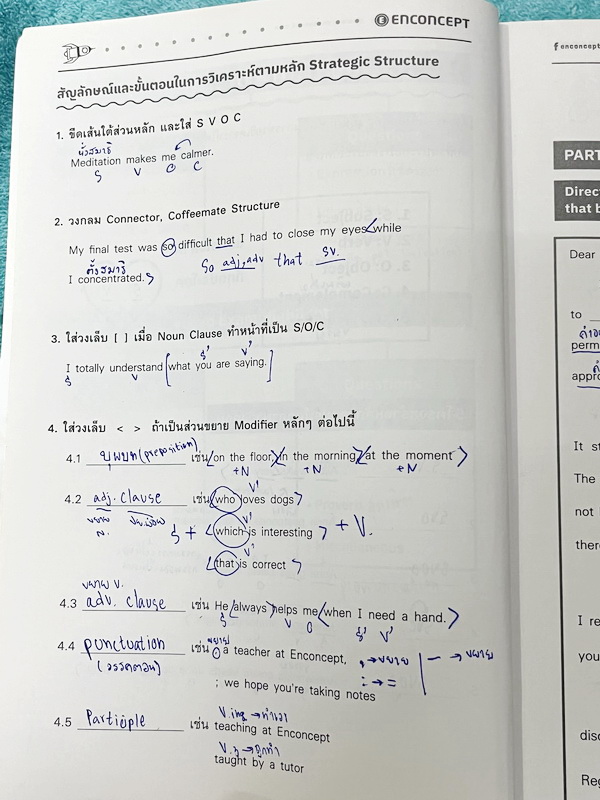 ENCONCEPT
สัญลักษณ์และขั้นตอนในการวิเคราะห์ตามหลัก Strategic Structure
1. ขีดเส้นใต้ส่วนหลัก และใส่ S V O C
นั่งสมาธิ
Meditation makes me calmer.
S V O C
2. วงกลม Connector, Coffeemate Structure
My final test was so difficult that I had to close my eyes while
ตั้งสมาธิ So adj,adv that SV.
I concentrated.
3. ใส่วงเล็บ [ ] เมื่อ Noun Clause ทำหน้าที่เป็น S/O/C
S' V'
I totally understand [what you are saying.]
S V
4. ใส่วงเล็บ < > ถ้าเป็นส่วนขยาย Modifier หลักๆ ต่อไปนี้
4.1 บุพบท (preposition) เช่น <on the floor> <in the morning> <at the moment>
+N +N +N
V'
4.2 adj. clause เช่น <who loves dogs>
ขยาย N.
V'
S + <which is interesting> + V.
V'
<that is correct>
ขยาย V.
4.3 adv. clause เช่น He <always> helps me <when I need a hand.>
S V O S' V'
ขยาย
4.4 punctuation เช่น , a teacher at Enconcept, , → ขยาย — → ขยาย
(วรรคตอน) ; we hope you're taking notes : → =
V.ing → ทำเอง
4.5 Participle เช่น teaching at Enconcept
V.3 → ถูกทำ
taught by a tutor
enconcept
PART
Direc
that b
Dear
to
perm
appro
It st
The
not
there
I re
you
disc
Reg